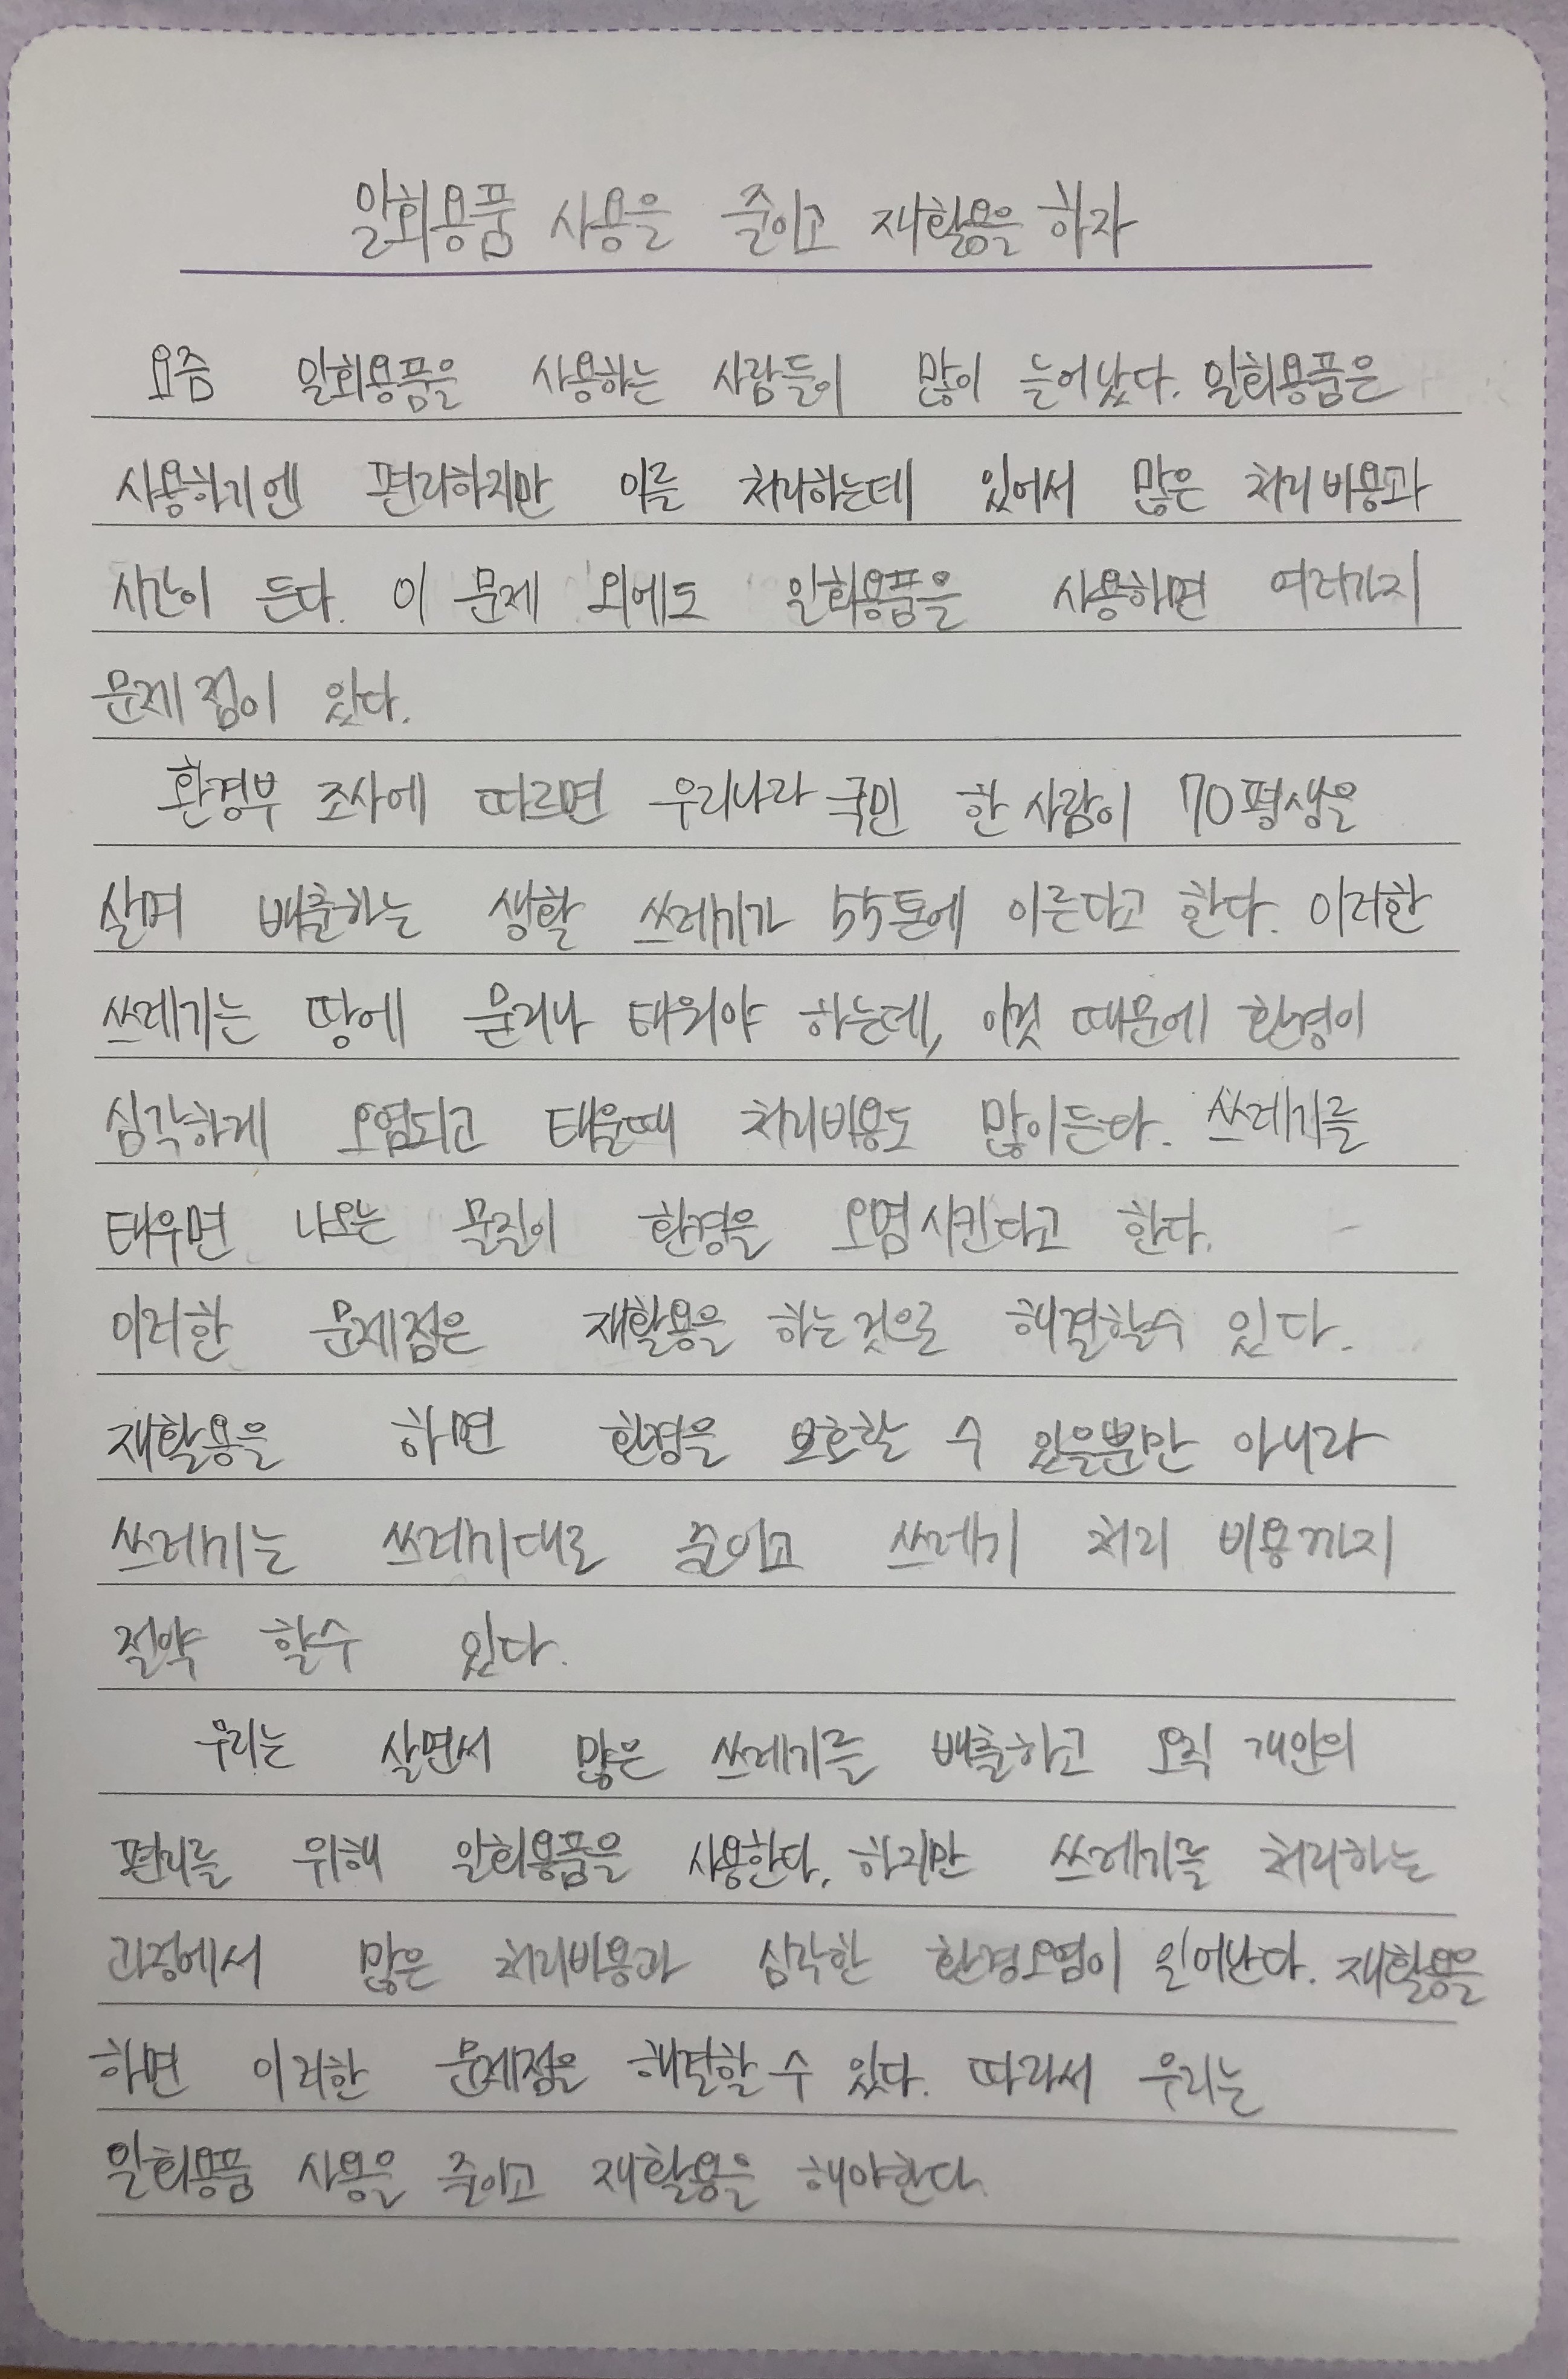 일회용품 사용을 줄이고 재활용을 하자
요즘 일회용품을 사용하는 사람들이 많이 늘어났다. 일회용품은
사용하기엔 편리하지만 이를 처리하는데 있어서 많은 처리 비용과
시간이 든다. 이 문제 외에도 일회용품을 사용하면 여러가지
문제점이 있다.
환경부 조사에 따르면 우리나라 국민 한 사람이 70평생을
살며 배출하는 생활 쓰레기가 55톤에 이른다고 한다. 이러한
쓰레기는 땅에 묻거나 태워야 하는데, 이것 때문에 환경이
심각하게 오염되고 태울때 처리비용도 많이든다. 쓰레기를
태우면 나오는 물질이 환경을 오염시킨다고 한다.
이러한 문제점은 재활용을 하는것으로 해결할수 있다.
재활용을 하면 환경을 보호할 수 있을뿐만 아니라
쓰레기는 쓰레기대로 줄이고 쓰레기 처리 비용까지
절약 할수 있다.
우리는 살면서 많은 쓰레기를 배출하고 오직 개인의
편리를 위해 일회용품을 사용한다. 하지만 쓰레기를 처리하는
과정에서 많은 처리비용과 심각한 환경오염이 일어난다. 재활용을
하면 이러한 문제점을 해결할 수 있다. 따라서 우리는
일회용품 사용을 줄이고 재활용을 해야한다.